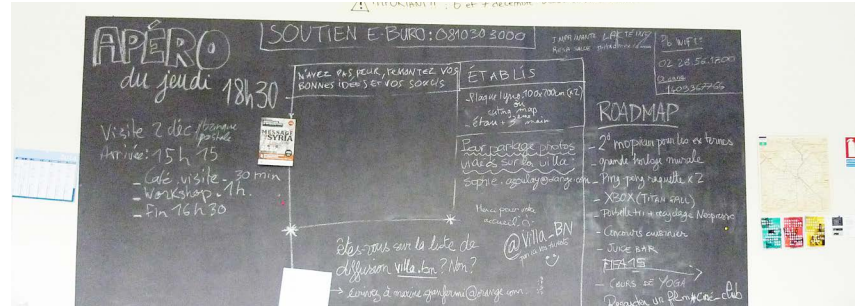 IMPORTANT!! : 6 et 7 décembre
APÉRO
du jeudi 18h30
Visite 2 déc. / banque postale
Arrivée: 15h15
- Café, visite. 30 min
- Workshop. 1h.
- Fin 16h30
SOUTIEN E-BURO: 0810 30 3000
N'AYEZ PAS PEUR, REMONTEZ VOS
BONNES IDEES ET VOS SOUCIS
MESSAGE
SYRIA
ÉTABLIS
- Plaque lyno 100x700cm (x2)
ou
cuting map
- Étau + 3ème main
Pour partage photos
vidéos sur la villa
Merci pour votre
accueil
@Villa_BN
Etes-vous sur la liste de
diffusion villa.bn ? Non ?
→ écrivez à
IMPRIMANTE
RESA SALLE
Pb WIFI:
02 28 56 1800
1409367766
ROADMAP
- 2d mopieur pour les externes
- grande horloge murale
- Ping-pong raquette x2
- XBOX (TITAN FALL)
- Poubelle tri + recyclage Nespresso
- Concours cuisinier
- JUICE BAR
- FIFA 15
- COURS DE YOGA
- Projection un film #ciné-club